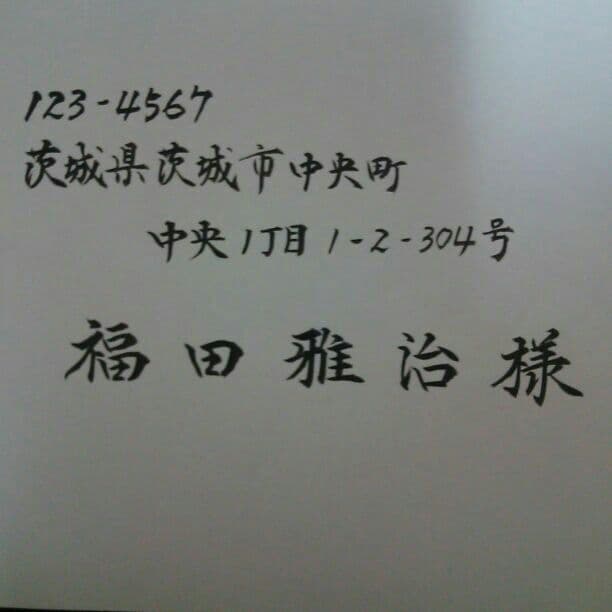 123-4567
茨城県茨城市中央町
中央1丁目1-2-304号
福田雅治様